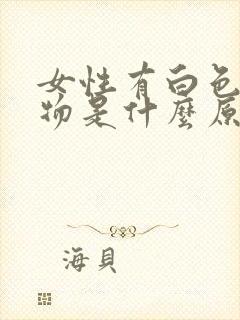 女性有白色
物是什麼原
海貝